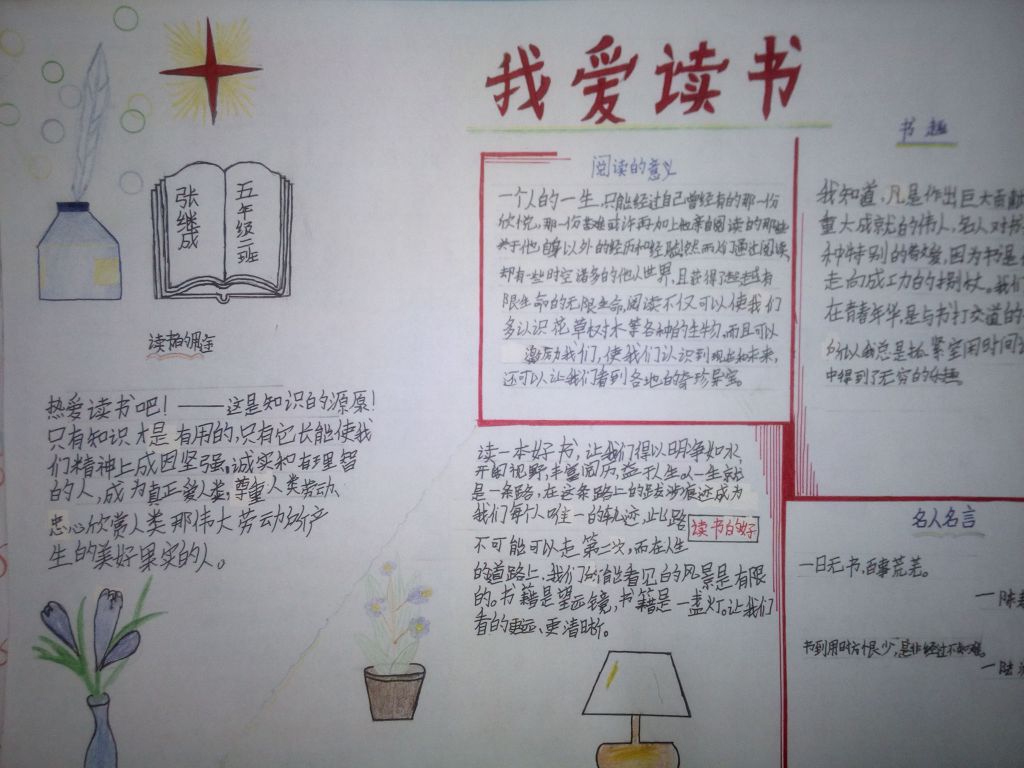 我爱读书
张继成
五年级二班
读书的用途
热爱读书吧！——这是知识的源原！
只有知识才是有用的,只有它长能使我
们精神上成因坚强,诚实和有理智
的人，成为真正爱人类,尊重人类劳动、
忠心欣赏人类那伟大劳动所产
生的美好果实的人。
阅读的意义
一个人的一生,只能经过自己曾经有的那一份
欣悦,那一份苦难或许再加上他亲自阅读的那些
关于他自身以外的经历和经验,然而人们通过阅读
却有一些时空诸多的他人世界,且获得了超越有
限生命的无限生命,阅读不仅可以使我们
多认识花草树木等各种的生物,而且可以
激励我们,使我们认识到现在和未来,
还可以让我们看到各地的奇珍异宝。
读一本好书，让我们得以明净如水
开阔视野,丰富阅历,益于人生,人一生就
是一条路，在这条路上的跋涉痕迹成为
我们每个人唯一的轨迹,此路
不可能可以走第二次,而在人生
的道路上,我们的看见的风景是有限
的。书籍是望远镜,书籍是一盏灯。让我们
看的更远、更清晰。
读书的好
书趣
我知道,凡是作出巨大贡献
重大成就的伟人,名人对书
种特别的酷爱,因为书是
走向成工力的拐杖。我们
在青青年华,是与书打交道的
所以我总是抓紧空闲时间
中得到了无穷的乐趣
名人名言
一日无书,百事荒芜。
—陆
书到用时方恨少,是非经过不知难。
—陆